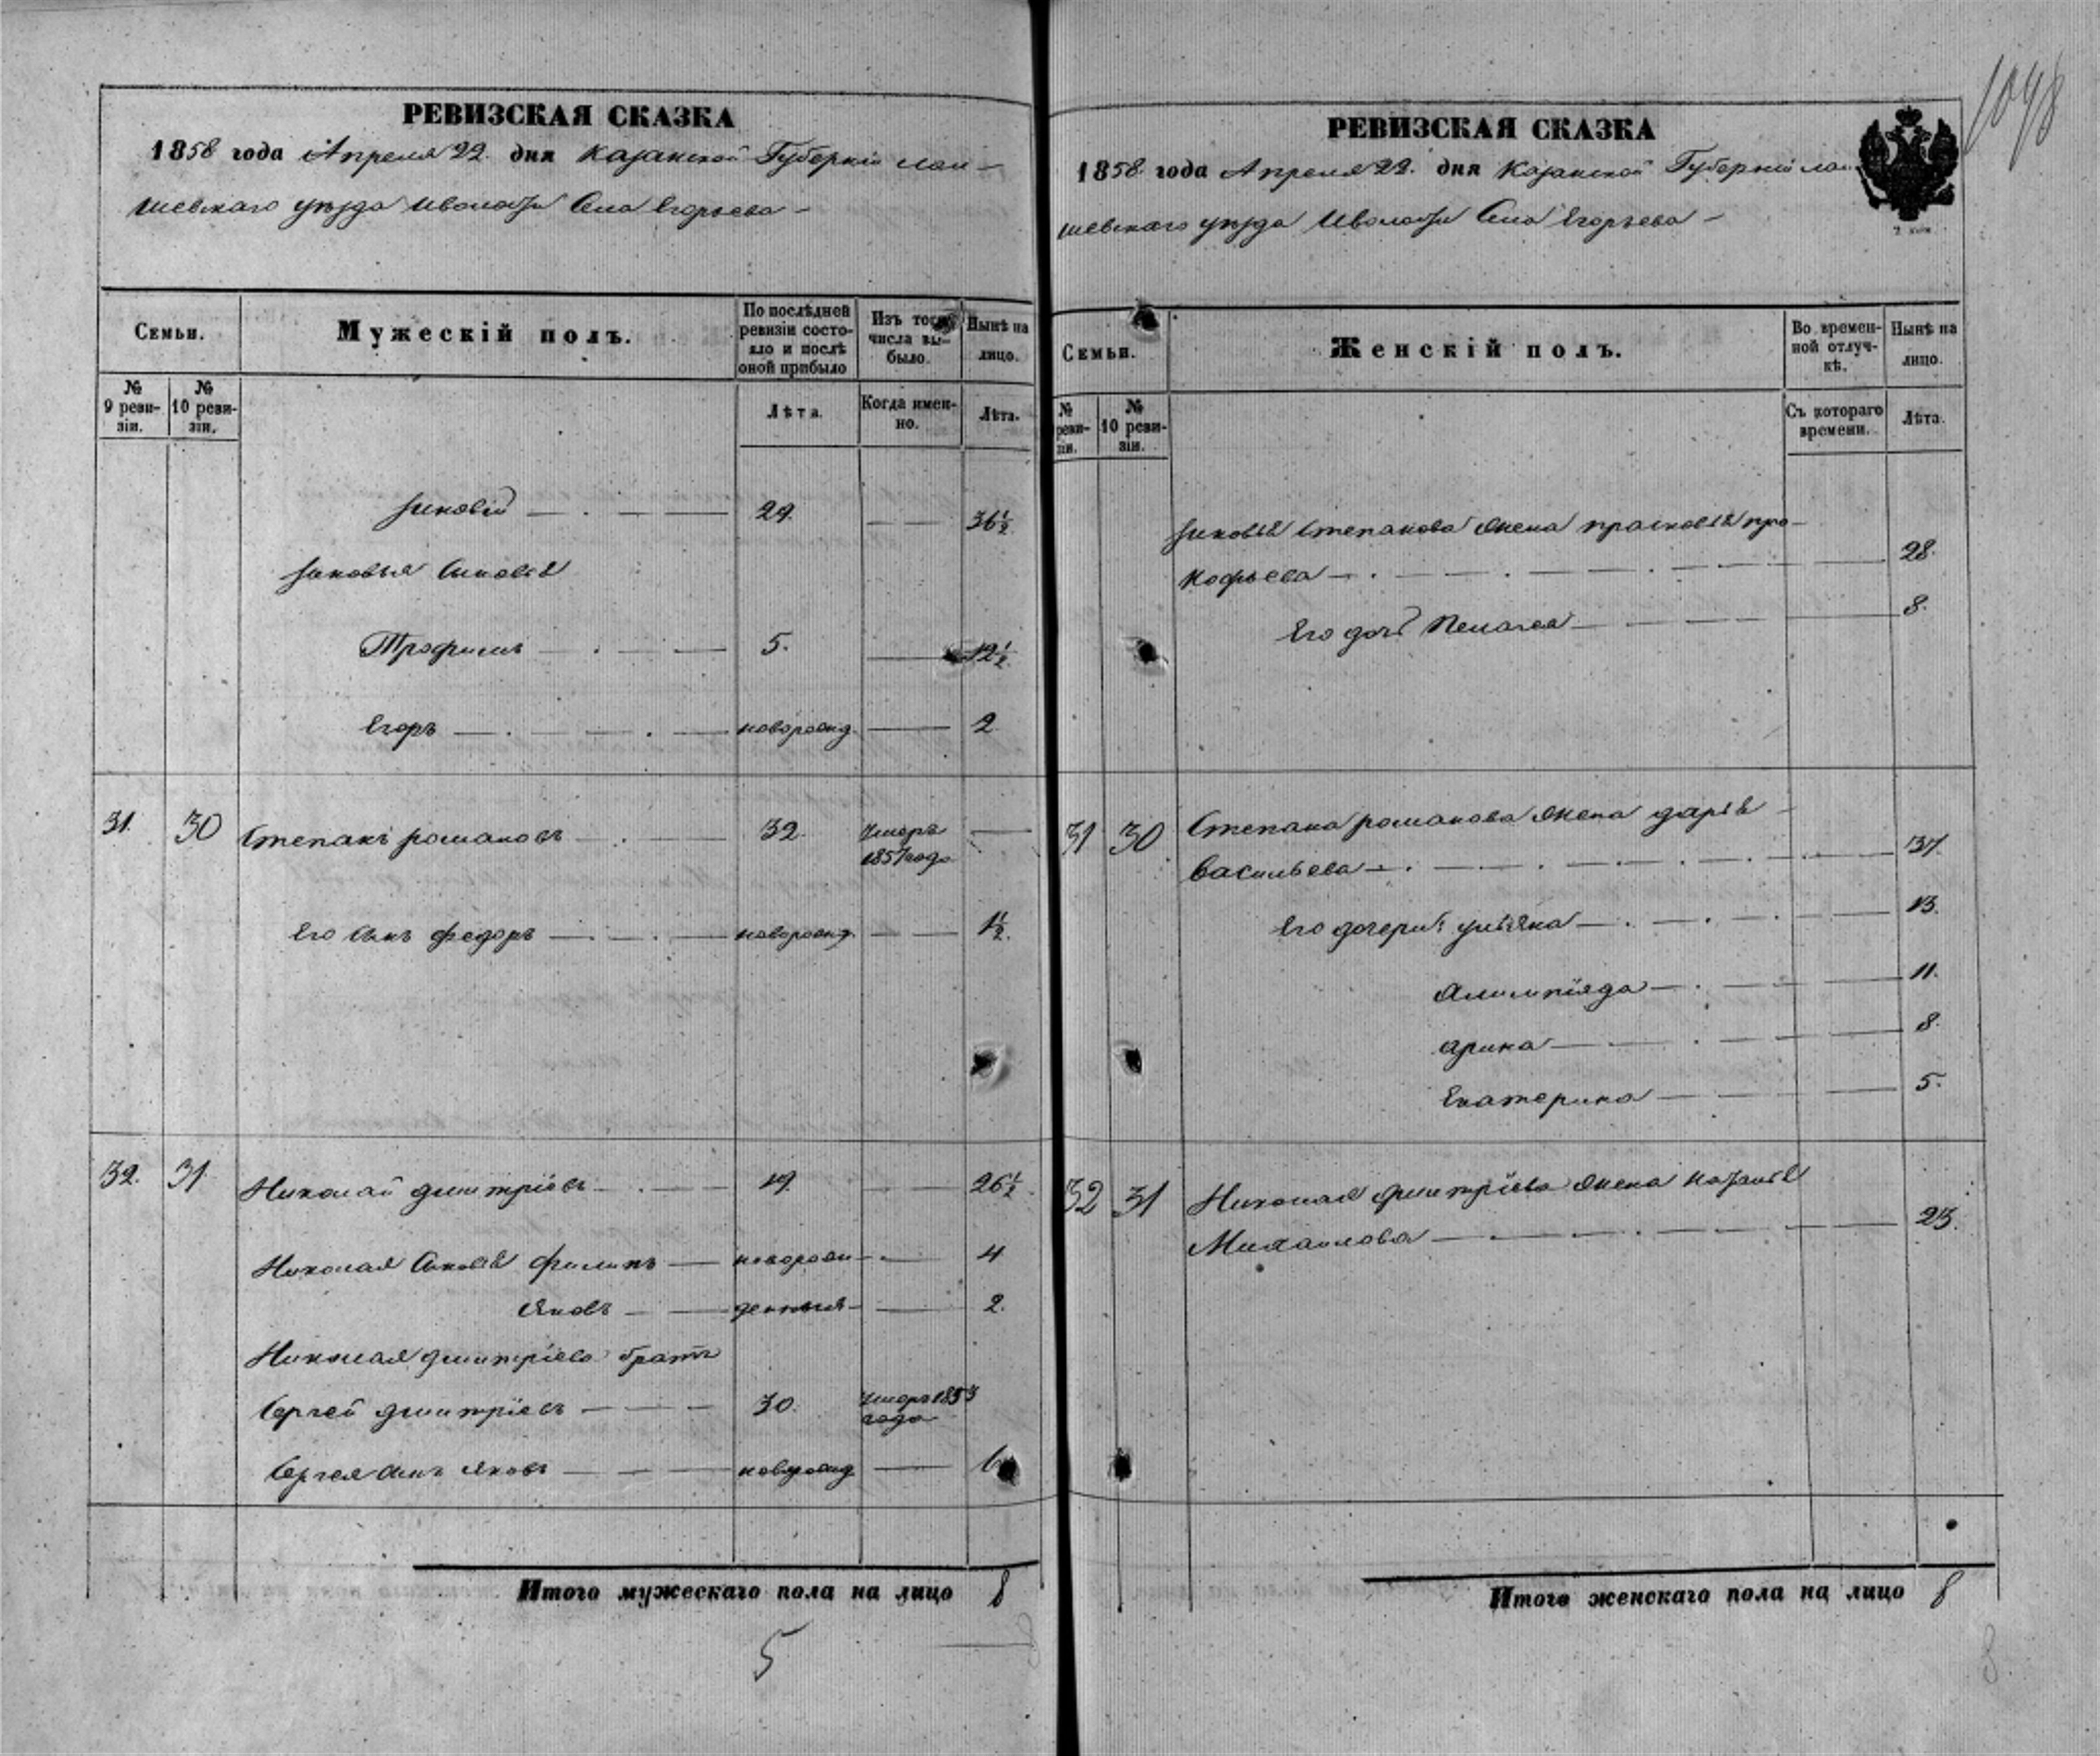 1048
РЕВИЗСКАЯ СКАЗКА
1858 года Апреля 22. дня Казанской Губерніи Лаи-
шевскаго уѣзда Села Егорьева
Семьи.
Мужескій полъ.
По послѣдней ревизіи состояло и послѣ оной прибыло
Изъ того числа выбыло.
Нынѣ на лицо.
№ 9 ревизіи.
№ 10 ревизіи.
Лѣта.
Когда именно.
Лѣта.
29. 36½
Сыновья
Трофимъ 5. 12½
Егоръ новорожд. 2
31. 30 Степанъ романовъ 32. Умеръ 1857 года
Его сынъ федоръ новорожд. 1½.
32. 31. Николай дмитріевъ 19. 26½
Николая Сыновья филипъ новорож 4
Яковъ денныя 2.
Николая дмитріева братъ
Сергей дмитріевъ 30. Умеръ 1853 года
Сергея сынъ Яковъ новорожд 6
Итого мужескаго пола на лицо 8
5
РЕВИЗСКАЯ СКАЗКА
1858. года Апреля 22. дня Казанской Губерніи Лаи
шевскаго уѣзда Села Егорьева
Семьи.
Женскій полъ.
Во временной отлучкѣ.
Нынѣ на лицо.
№ реви-зіи.
№ 10 ревизіи.
Съ котораго времени.
Лѣта.
Степанова жена прасковья про-
кофьева 28.
Его дочь Пелагея 8.
31 30 Степана романова жена дарья
Васильева 37.
Его дочери: ульяна 13.
Алимпіяда 11.
Арина 8.
Екатерина 5.
32 31 Николая дмитріева жена наталья
Михаилова 23.
Итого женскаго пола на лицо 8
8